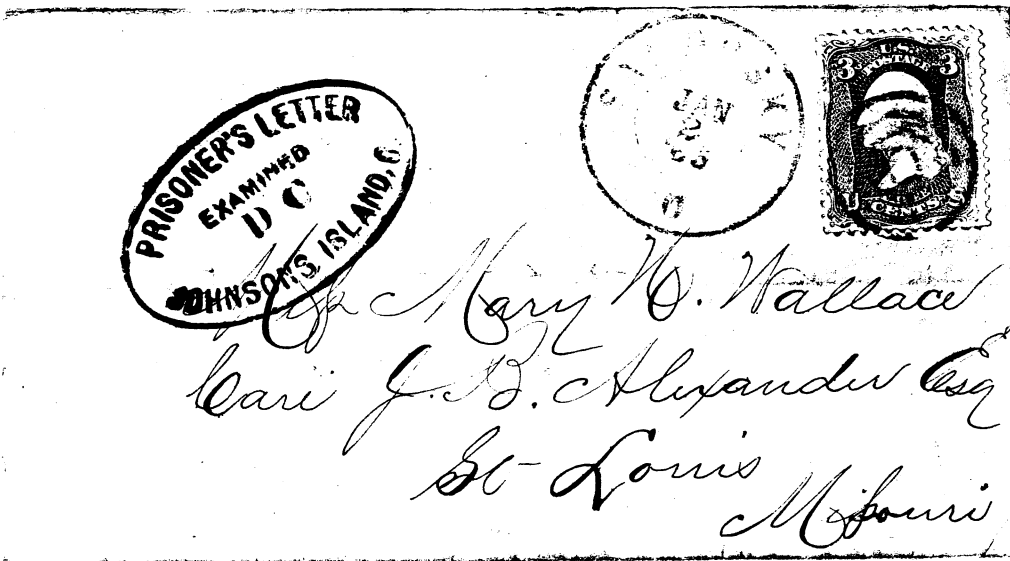 PRISONER'S LETTER
EXAMINED
D C
JOHNSON'S ISLAND, O
JAN
O
U.S.
POSTAGE
3 3
CENTS
Miss Mary W. Wallace
Care J. B. Alexander Esq
St Louis
Missouri